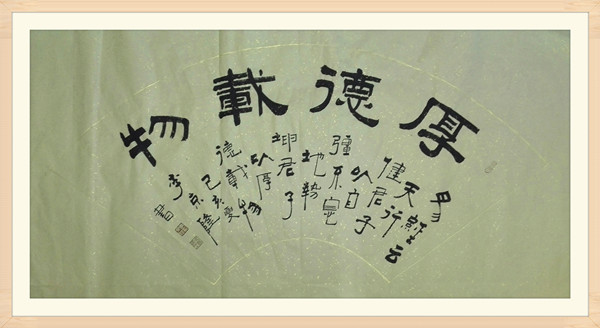 厚德載物
易經云
天行
健君子
以自
強不息
地勢
坤君子
以厚
德載物
己亥夏
書